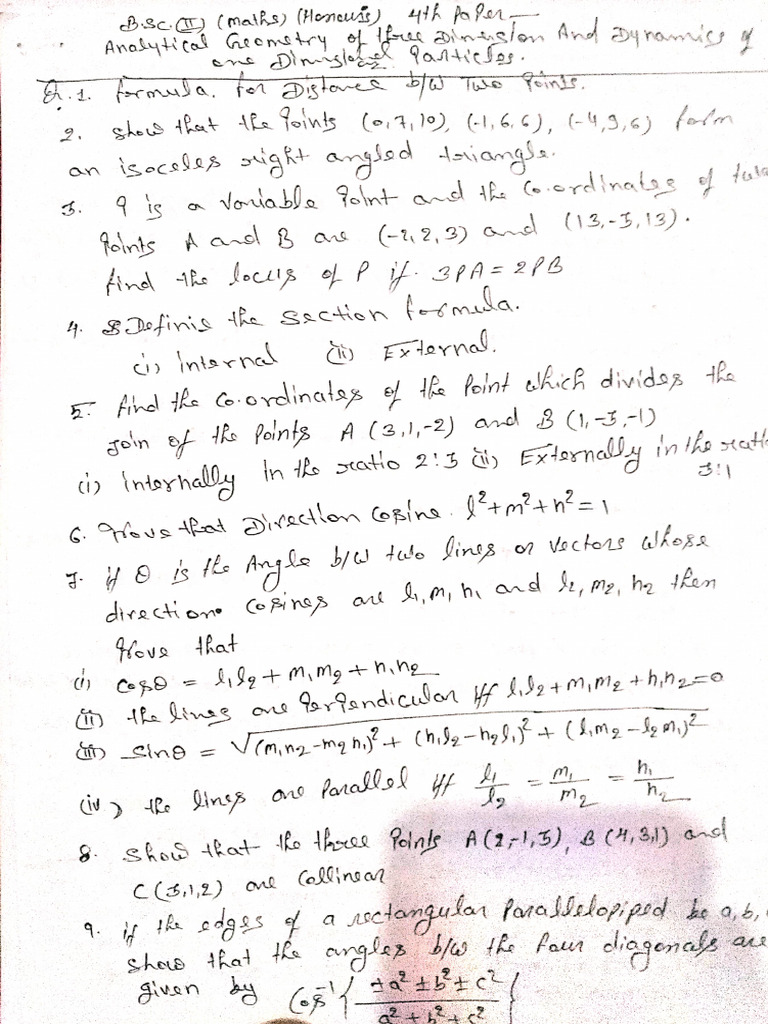 B.Sc. (II) (Maths) (Honours) 4th Paper
Analytical Geometry of three Dimension And Dynamics of
one Dimensional Particles.
Q.1. formula. for Distance b/w Two Points.
2. show that the Points (0,7,10), (-1,6,6), (-4,9,6) form
an isoceles right angled triangle.
3. P is a variable Point and the Co.ordinates of two
Points A and B are (-2,2,3) and (13,-3,13).
find the locus of P if. 3PA = 2PB
4. Define the section formula.
(i) internal (ii) External.
5. find the Co.ordinates of the Point which divides the
join of the Points A (3,1,-2) and B (1,-3,-1)
(i) internally in the ratio 2:3 (ii) Externally in the ratio
3:1
6. Prove that Direction Cosine. l²+m²+n²=1
7. if θ is the Angle b/w two lines or vectors whose
direction cosines are l₁,m₁,n₁ and l₂,m₂,n₂ then
Prove that
(i) cosθ = l₁l₂ + m₁m₂ + n₁n₂
(ii) the lines are Perpendicular iff l₁l₂+m₁m₂+n₁n₂=0
(iii) sinθ = √(m₁n₂-m₂n₁)² + (n₁l₂-n₂l₁)² + (l₁m₂-l₂m₁)²
(iv) the lines are Parallel iff l₁/l₂ = m₁/m₂ = n₁/n₂
8. show that the three Points A(2,-1,3), B(4,3,1) and
C(3,1,2) are Collinear
9. if the edges of a rectangular Parallelopiped be a,b,
show that the angles b/w the four diagonals are
given by Cos⁻¹{ ±a²±b²±c² / a²+b²+c² }